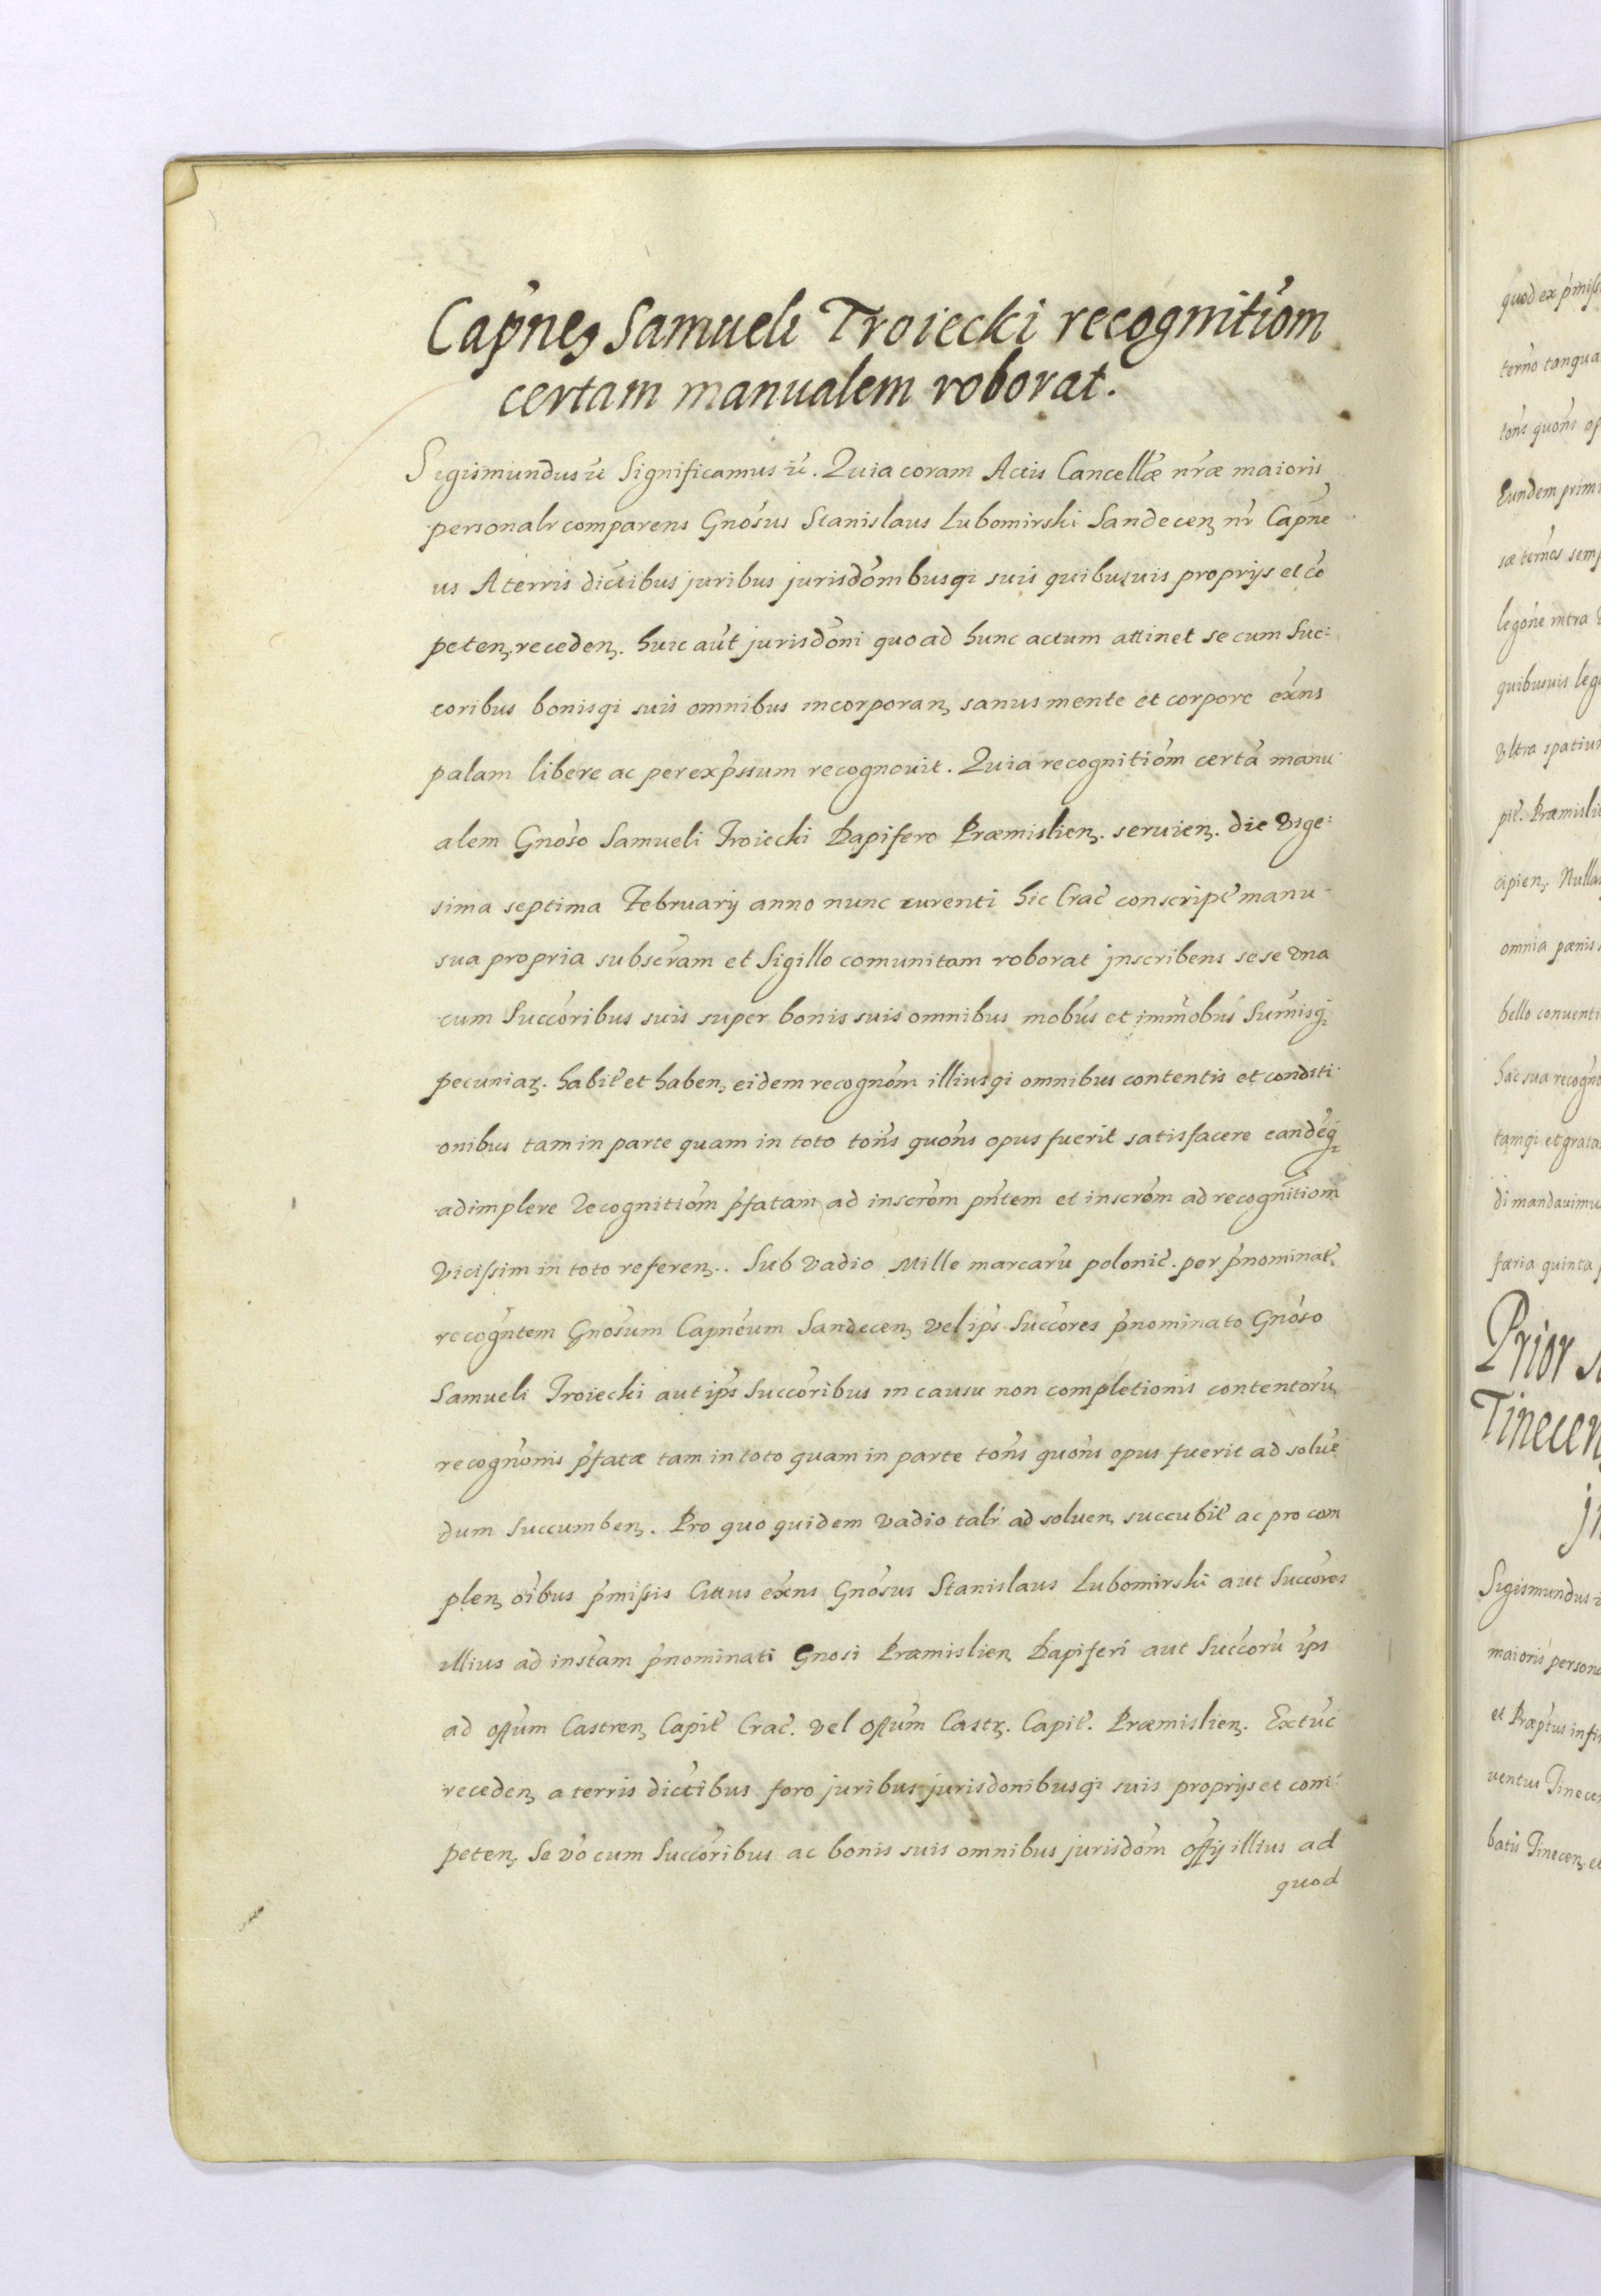 Capnẽs Samueli Troiecki recognitiõm
certam manualem roborat.
Sigismundus etc Significamus etc. Quia coram Actis Cancellæ nræ maioris
personalr comparens Gnosus Stanislaus Lubomirski Sandecen nr Capne
us A terris dictibus juribus jurisdombusqi suis quibusuis proprijs et cõ
peten. receden. huic aut jurisdoni quoad hunc actum attinet se cum Suc:
coribus bonisqi suis omnibus incorporan sanus mente et corpore exns
palam libere ac per exprssum recognouit. Quia recognitiom certã manu
alem Gnoso Samueli Troiecki Dapifero Præmislien. seruien. die vige:
sima septima Februarij anno nunc currenti hic Crac conscript manu
sua propria subscram et Sigillo comunitam roborat jnscribens sese vna
cum Succoribus suis super bonis suis omnibus mobus et immobus Sumisqi
pecuniar. habit et haben, eidem recognom illiusqi omnibus contentis et conditi
onibus tam in parte quam in toto tons quons opus fuerit satisfacere eandẽqi
adimplere recognitiom pfatam ad inscrom pntem et inscrom ad recognitiom
vicissim in toto referen.. Sub vadio Mille marcarũ polonic. per pnominat.
recogntem Gnosum Capneum Sandecen vel ips Succores pnominato Gnoso
Samueli Troiecki aut ips Succoribus in causu non completionis contentorũ
recognonis pfatæ tam in toto quam in parte tons quons opus fuerit ad soluẽ
dum Succumben. Pro quo quidem vadio tali ad soluen succubit ac pro com
plen oibus pmissis Cittus exns Gnosus Stanislaus Lubomirski aut Succores
illius ad instam pnominati Gnosi Præmislien Dapiferi aut Succorũ ips
ad offum Castren Capit Crac. vel offum Castr. Capit. Præmislien. Extũc
receden a terris dictibus foro juribus jurisdonibusqi suis proprijs et com:
peten, Se vo cum Succoribus ac bonis suis omnibus jurisdom offij illius ad
quod
quod ex pmiss
omnia pænis
bello conuenti
hac sua recogno
di mandauimu
færia quinta
Prior
Tinecen
Sigismundus
maioris persona